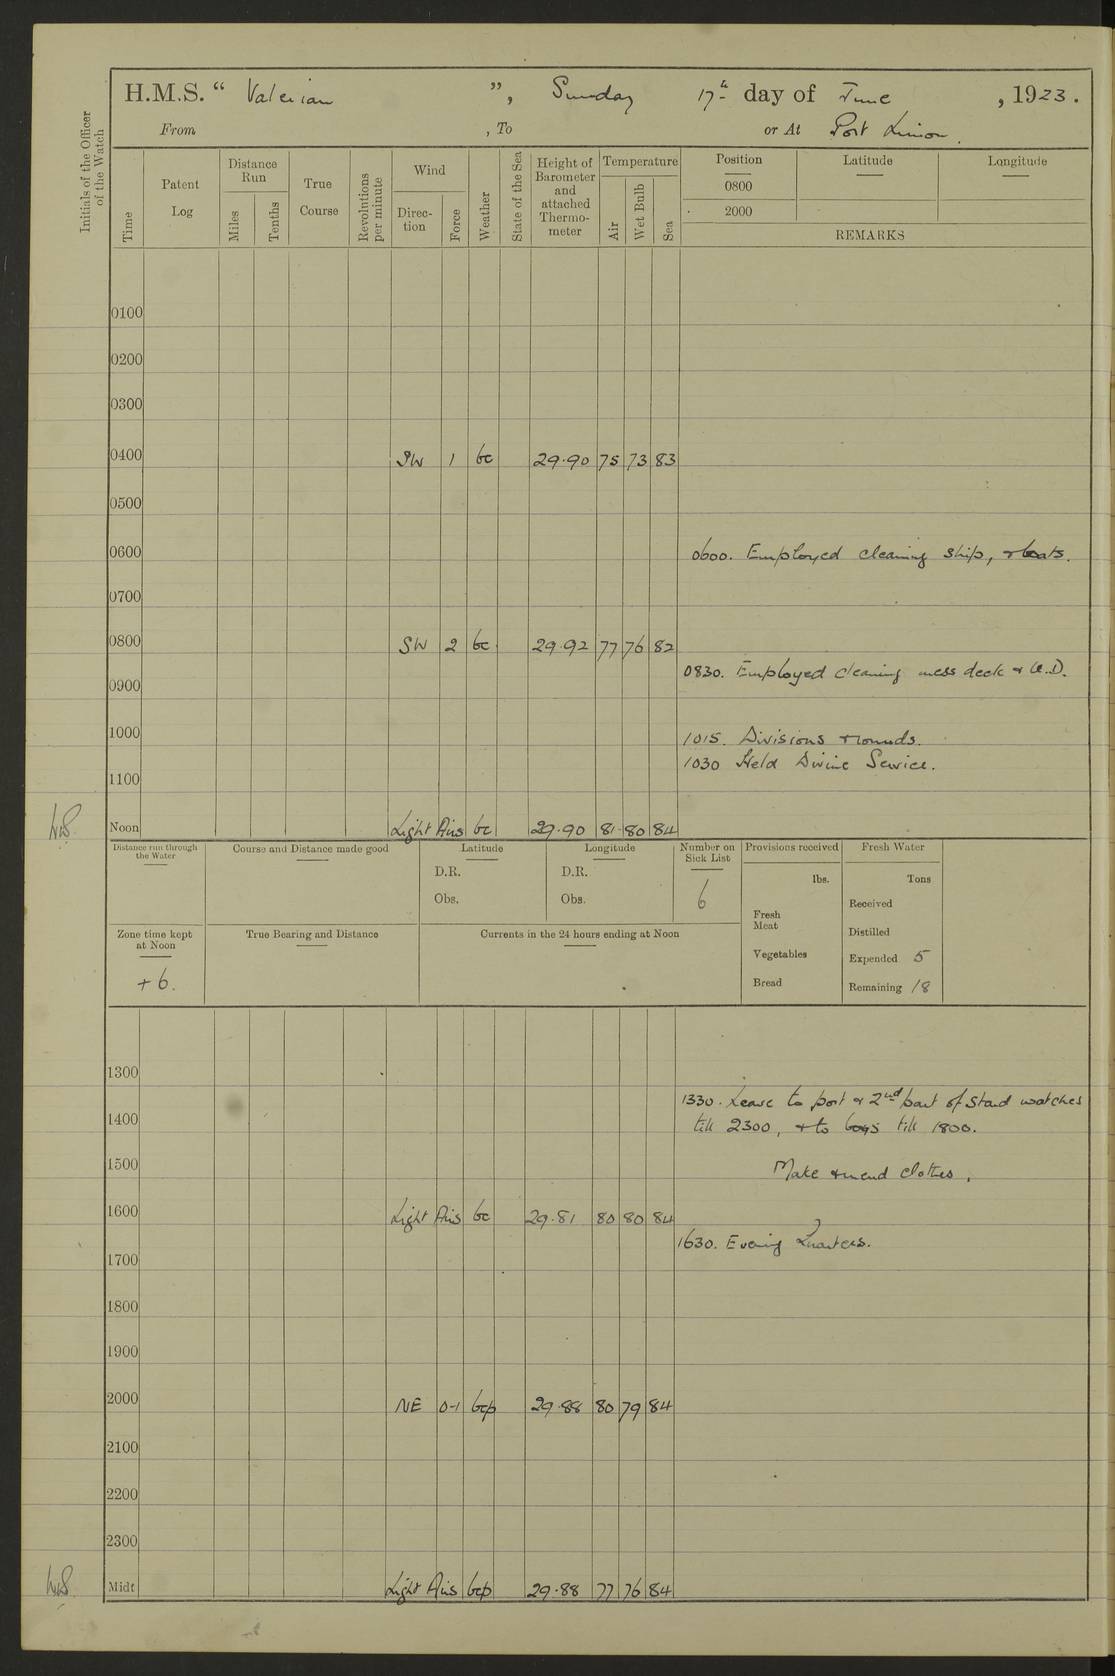 H.M.S. “ Valerian ”, Sunday 17th day of June , 1923.
From , To or At Port Limon.
Initials of the Officer of the Watch
Time
Patent Log
Distance Run
Miles
Tenths
True Course
Revolutions per minute
Wind
Direc-tion
Force
Weather
State of the Sea
Height of Barometer and attached Thermo-meter
Temperature
Air
Wet Bulb
Sea
Position Latitude Longitude
0800
2000
REMARKS
0100
0200
0300
0400 SW 1 bc 29.90 75 73 83
0500
0600 0600. Employed cleaning ship, & boats.
0700
0800 SW 2 bc 29.92 77 76 82
0830. Employed cleaning mess deck & U.D.
0900
1000 1015. Divisions & rounds.
1030 Held Divine Service.
1100
Noon Light Airs bc 29.90 81 80 84
Distance run through the Water
Course and Distance made good
Latitude
D.R.
Obs.
Longitude
D.R.
Obs.
Number on Sick List
6
Provisions received
lbs.
Fresh Meat
Vegetables
Bread
Fresh Water
Tons
Received
Distilled
Expended 5
Remaining 18
Zone time kept at Noon
+6.
True Bearing and Distance
Currents in the 24 hours ending at Noon
1300
1330. Leave to port & 2nd part of Starbd watches
1400 till 2300, & to boys till 1800.
1500 Make & mend clothes.
1600 Light Airs bc 29.81 80 80 84
1630. Evening Quarters.
1700
1800
1900
2000 NE 0-1 bcp 29.88 80 79 84
2100
2200
2300
Midt Light Airs bcp 29.88 77 76 84